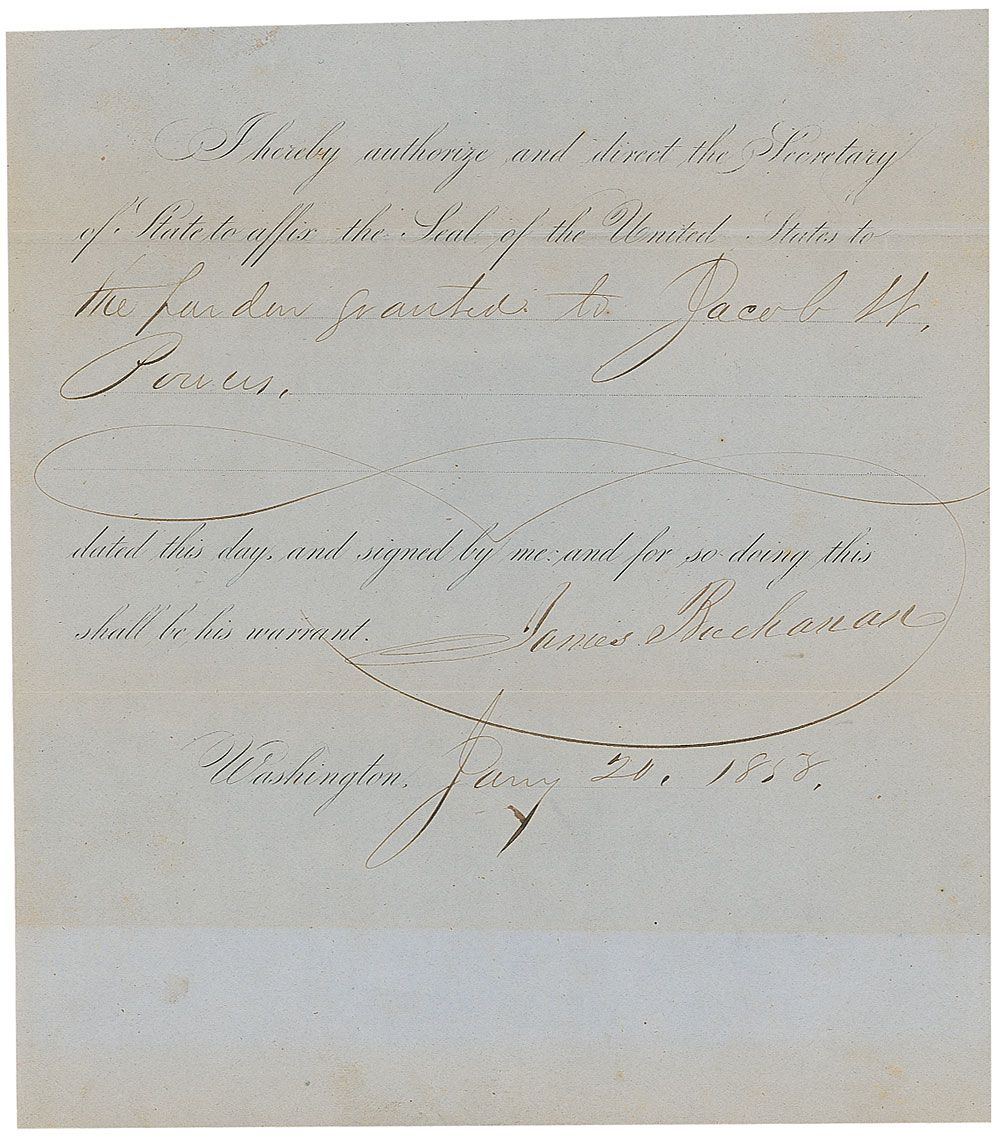 I hereby authorize and direct the Secretary
of State to affix the Seal of the United States to
the pardon granted to Jacob W.
Powers,
dated this day, and signed by me: and for so doing this
shall be his warrant.
James Buchanan
Washington, Jany 20, 1858,